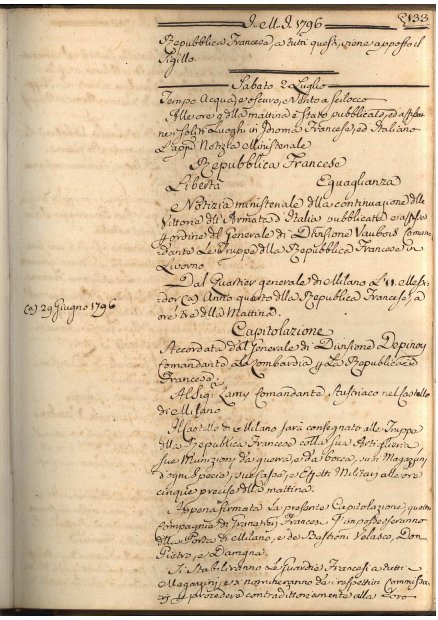 I. M. I. 1796
133
Repubblica Francese, a tutti questi, viene apposto il
Sigillo.
Sabato 2 Luglio
Tempo Acqua, e oscuro, e Vento a Scilocco
Alle ore 9 della mattina è stato pubblicato, ed affisso
ne soliti Luoghi in Idioma Francese, ed Italiano
L'app.a Notizia Ministeriale
Repubblica Francese
Libertà Eguaglianza
Notizia ministeriale della continuazione delle
Vittorie dell'Armata d'Italia pubblicata e affissa
d'ordine del Generale di Divisione Vaubois Coman
dante le Truppe della Repubblica Francese in
Livorno
Dal Quartier generale di Milano L'11 Messi
dor (a) Anno quarto della Repubblica Francese, a
ore della Mattina.
(a) 29 Giugno 1796
Capitolazione
Accordata dal Generale di Divisione Depinoy
Comandante la Lombardia p. La Republica
Francese
Al Sig. Lamy Comandante Austriaco nel Castello
di Milano
Il Castello di Milano sarà consegnato alle Truppe
della Republica Francese colla sua Artiglieria
sue Munizioni da guerra, e da bocca, suoi Magazzini
d'ogni Specie, sue casse, e Effetti Militari alle ore
cinque precise della mattina.
Appena firmata la presente Capitolazione, quattro
Compagnie di Granatieri Francesi s'impossesseranno
della Porta di Milano, e de Bastioni Velasco, Don
Pietro, e Damgna.
Si stabiliranno Le Guardie Francesi a tutti i
Magazzini, e si nomineranno de rispettivi Commissa
rj p. procedere contradittoriamente alla loro